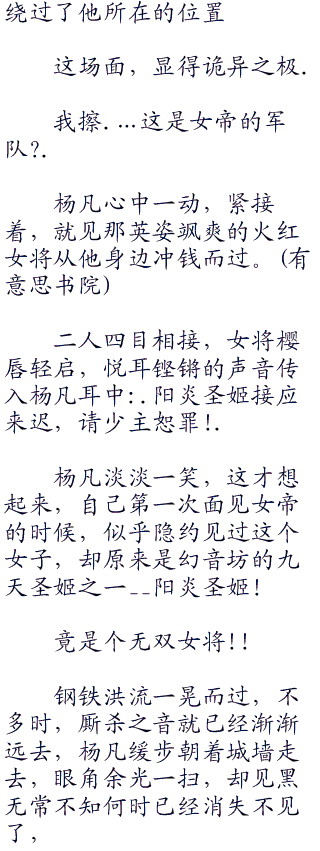 绕过了他所在的位置
这场面，显得诡异之极.
我擦....这是女帝的军
队?.
杨凡心中一动，紧接
着，就见那英姿飒爽的火红
女将从他身边冲钱而过。(有
意思书院)
二人四目相接，女将樱
唇轻启，悦耳铿锵的声音传
入杨凡耳中:.阳炎圣姬接应
来迟，请少主恕罪!.
杨凡淡淡一笑，这才想
起来，自己第一次面见女帝
的时候，似乎隐约见过这个
女子，却原来是幻音坊的九
天圣姬之一--阳炎圣姬!
竟是个无双女将!!
钢铁洪流一晃而过，不
多时，厮杀之音就已经渐渐
远去，杨凡缓步朝着城墙走
去，眼角余光一扫，却见黑
无常不知何时已经消失不见
了，